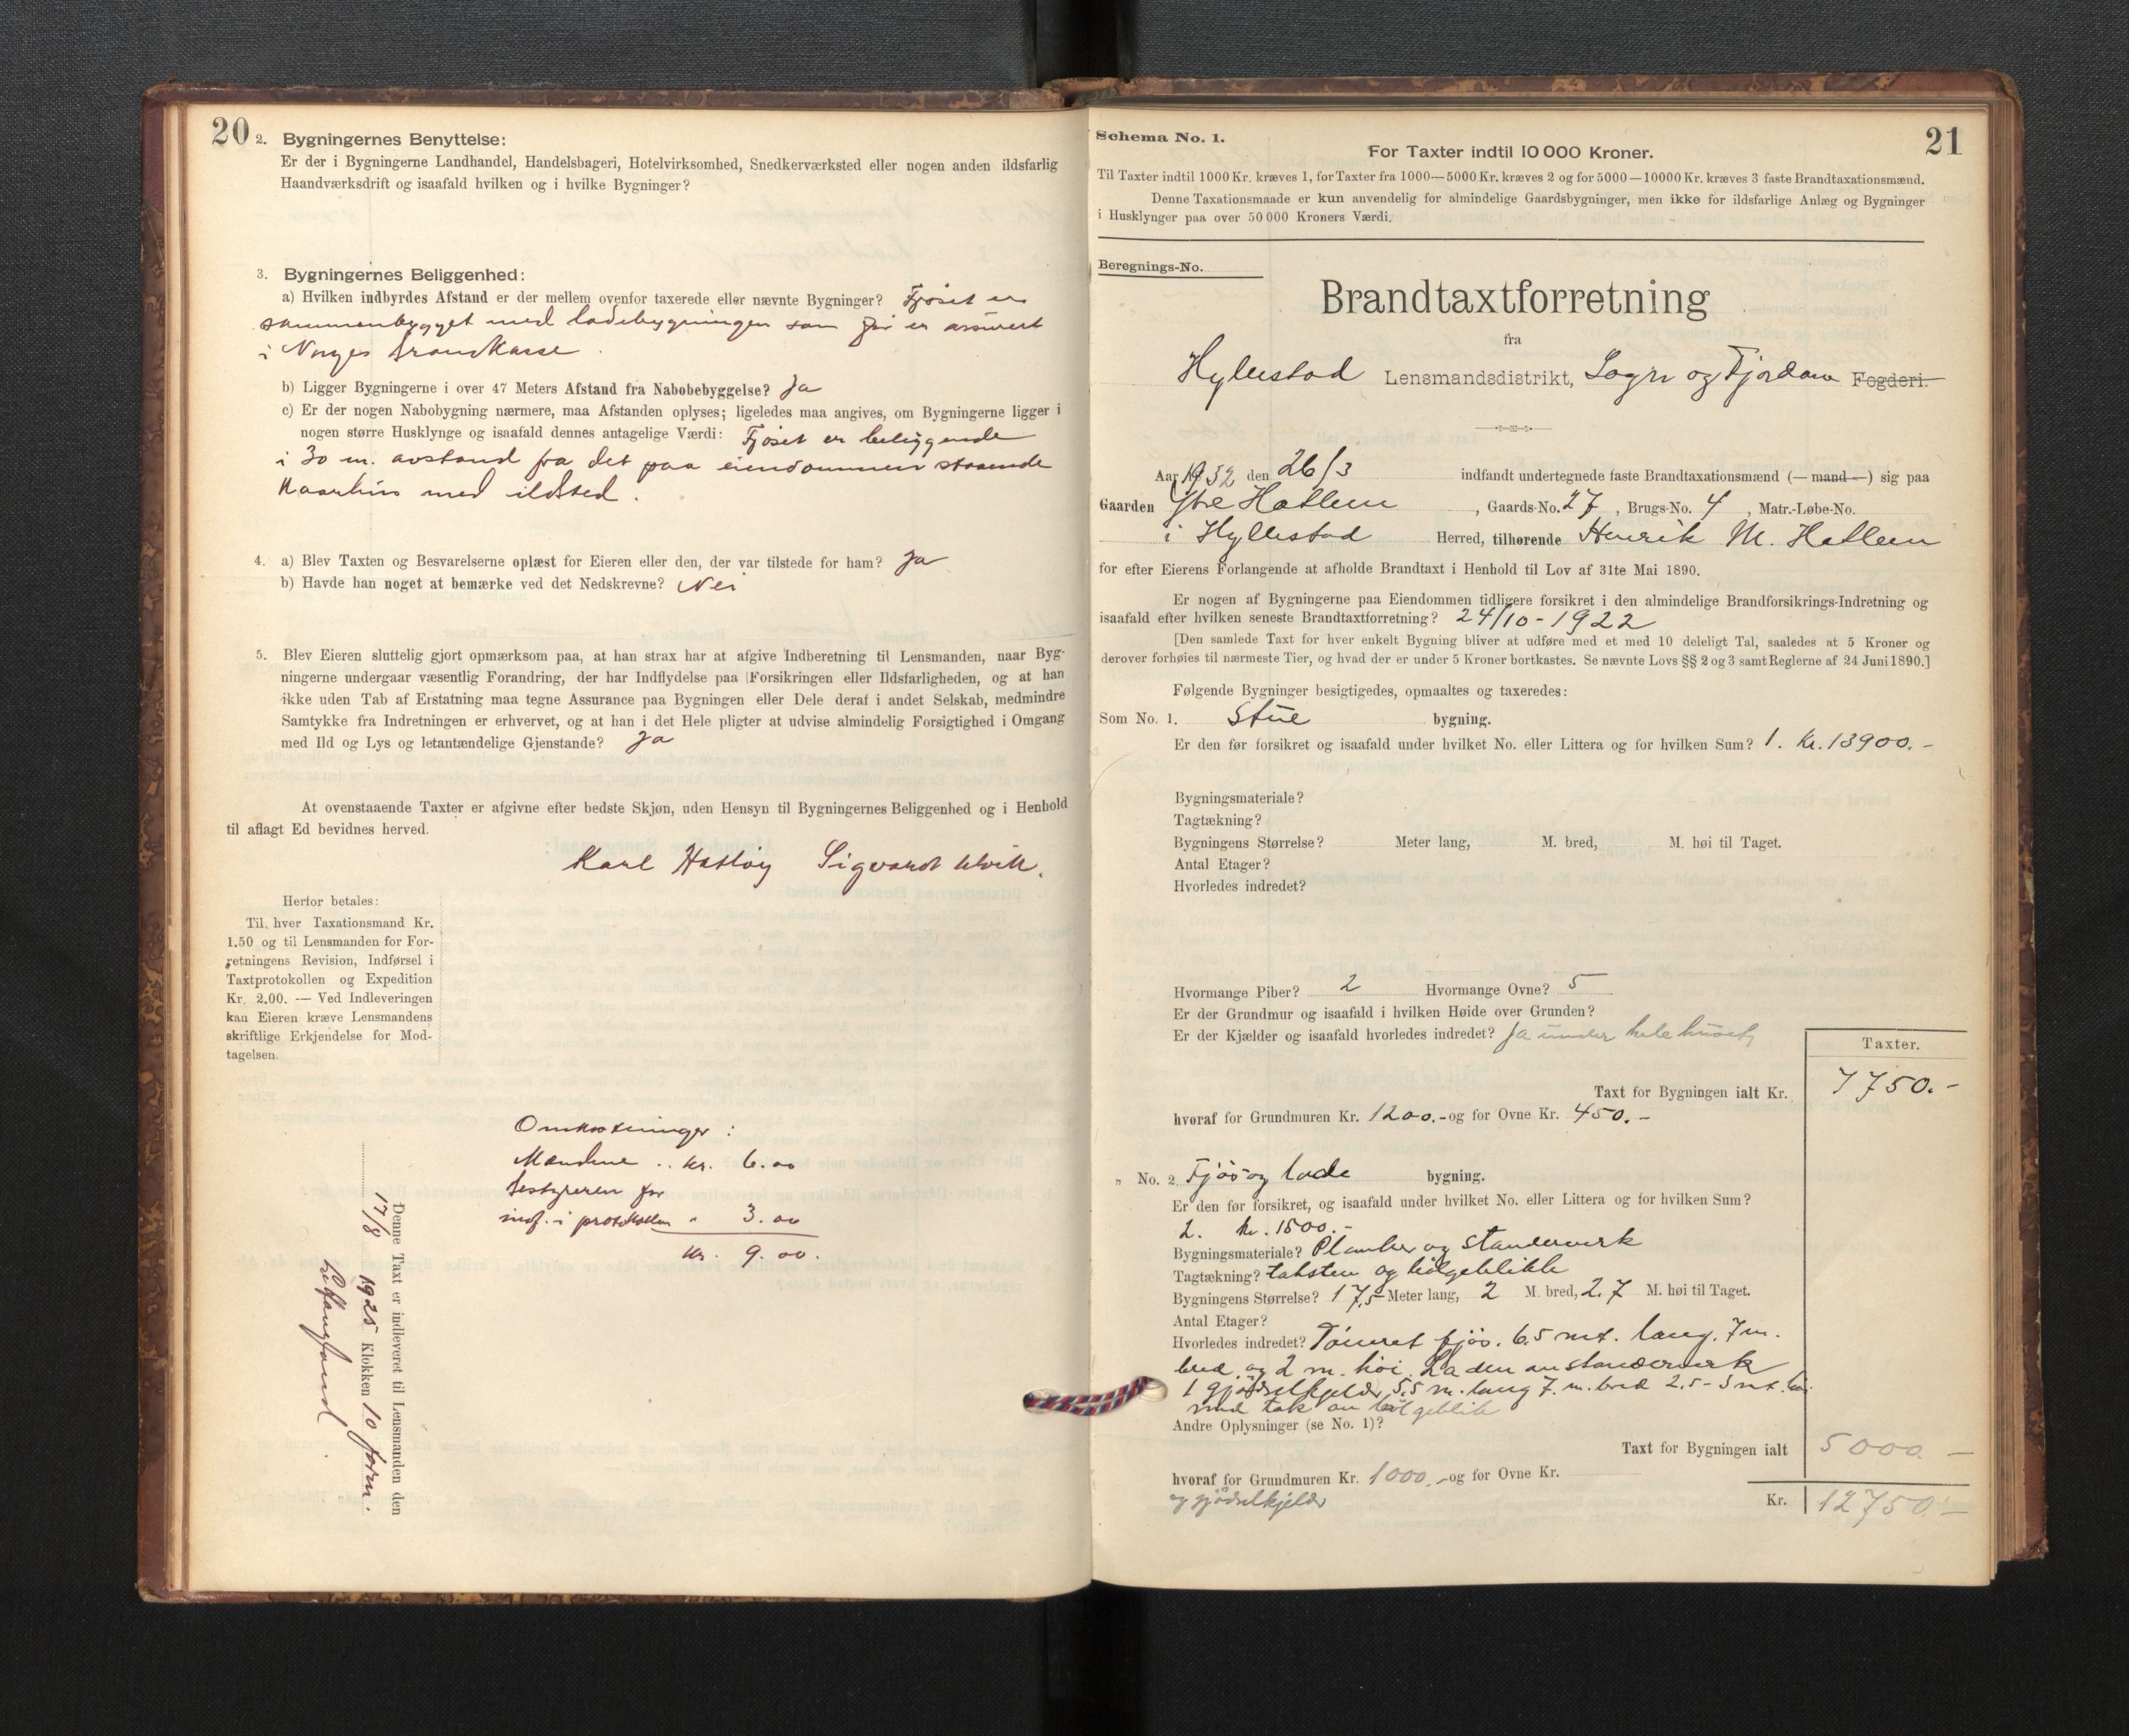 20
2. Bygningernes Benyttelse:
Er der i Bygningerne Landhandel, Handelsbageri, Hotelvirksomhed, Snedkerværksted eller nogen anden ildsfarlig
Haandværksdrift og isaafald hvilken og i hvilke Bygninger?
3. Bygningernes Beliggenhed:
a) Hvilken indbyrdes Afstand er der mellem ovenfor taxerede eller nævnte Bygninger? Fjøset er
sammenbygget med ladebygningen som før er assurert
i Norges brandkasse.
b) Ligger Bygningerne i over 47 Meters Afstand fra Nabobebyggelse? Ja
c) Er der nogen Nabobygning nærmere, maa Afstanden oplyses; ligeledes maa angives, om Bygningerne ligger i
nogen større Husklynge og isaafald dennes antagelige Værdi: Fjøset er beliggende
i 30 m. avstand fra det paa eiendommen staaende
Kaarhus med ildsted.
4. a) Blev Taxten og Besvarelserne oplæst for Eieren eller den, der var tilstede for ham? Ja
b) Havde han noget at bemærke ved det Nedskrevne? Nei
5. Blev Eieren sluttelig gjort opmærksom paa, at han strax har at afgive Indberetning til Lensmanden, naar Byg-
ningerne undergaar væsentlig Forandring, der har Indflydelse paa Forsikringen eller Ildsfarligheden, og at han
ikke uden Tab af Erstatning maa tegne Assurance paa Bygningen eller Dele deraf i andet Selskab, medmindre
Samtykke fra Indretningen er erhvervet, og at han i det Hele pligter at udvise almindelig Forsigtighed i Omgang
med Ild og Lys og letantændelige Gjenstande? Ja
At ovenstaaende Taxter er afgivne efter bedste Skjøn, uden Hensyn til Bygningernes Beliggenhed og i Henhold
til aflagt Ed bevidnes herved.
Karl Hatløy Sigvardt
Herfor betales:
Til hver Taxationsmand Kr.
1.50 og til Lensmanden for For-
retningens Revision, Indførsel i
Taxtprotokollen og Expedition
Kr. 2.00. — Ved Indleveringen
kan Eieren kræve Lensmandens
skriftlige Erkjendelse for Mod-
tagelsen.
Omkostninger:
Mændene .. kr. 6.00
bestyreren for
indf. i protokollen " 3.00
kr. 9.00.
Denne Taxt er indleveret til Lensmanden den
17/8 1925 Klokken 10 form.
Schema No. 1.
21
For Taxter indtil 10 000 Kroner.
Til Taxter indtil 1000 Kr. kræves 1, for Taxter fra 1000—5000 Kr. kræves 2 og for 5000—10000 Kr. kræves 3 faste Brandtaxationsmænd.
Denne Taxationsmaade er kun anvendelig for almindelige Gaardsbygninger, men ikke for ildsfarlige Anlæg og Bygninger
i Husklynger paa over 50 000 Kroners Værdi.
Beregnings-No.
Brandtaxtforretning
fra
Hyllestad Lensmandsdistrikt, Sogn og Fjordane Fogderi.
Aar 1932 den 26/3 indfandt undertegnede faste Brandtaxationsmænd (— mand —) sig paa
Gaarden Ytre Hatlem, Gaards-No. 27, Brugs-No. 4, Matr.-Løbe-No.
i Hyllestad Herred, tilhørende Henrik M. Hatlem
for efter Eierens Forlangende at afholde Brandtaxt i Henhold til Lov af 31te Mai 1890.
Er nogen af Bygningerne paa Eiendommen tidligere forsikret i den almindelige Brandforsikrings-Indretning og
isaafald efter hvilken seneste Brandtaxtforretning? 24/10-1922
[Den samlede Taxt for hver enkelt Bygning bliver at udføre med et med 10 deleligt Tal, saaledes at 5 Kroner og
derover forhøies til nærmeste Tier, og hvad der er under 5 Kroner bortkastes. Se nævnte Lovs §§ 2 og 3 samt Reglerne af 24 Juni 1890.]
Følgende Bygninger besigtigedes, opmaaltes og taxeredes:
Som No. 1. Stue bygning.
Er den før forsikret og isaafald under hvilket No. eller Littera og for hvilken Sum? 1. Kr. 13900.-
Bygningsmateriale?
Tagtækning?
Bygningens Størrelse? Meter lang, M. bred, M. høi til Taget.
Antal Etager?
Hvorledes indredet?
Hvormange Piber? 2 Hvormange Ovne? 5
Er der Grundmur og isaafald i hvilken Høide over Grunden?
Er der Kjælder og isaafald hvorledes indredet? Ja under hele huset
Taxter.
Taxt for Bygningen ialt Kr. 7750.-
hvoraf for Grundmuren Kr. 1200.- og for Ovne Kr. 450.-
" No. 2. Fjøs og lade bygning.
Er den før forsikret, og isaafald under hvilket No. eller Littera og for hvilken Sum?
2. kr. 1500.-
Bygningsmateriale? Planker og standerverk
Tagtækning? taksten og bølgeblikk
Bygningens Størrelse? 17,5 Meter lang, 2 M. bred, 2.7 M. høi til Taget.
Antal Etager?
Hvorledes indredet? Tømret fjøs. 6.5 mt. lang. 7 m.
bred og 2 m. høi. Laden av standerverk
1 gjødselkjelder 5,5 m. lang 7. m. bred 2.5-3 mt. høi
med tak av bølgeblik
Andre Oplysninger (se No. 1)?
Taxt for Bygningen ialt 5000.—
hvoraf for Grundmuren Kr. 1000.- og for Ovne Kr.
og gjødselkjelder
Kr. 12750.—